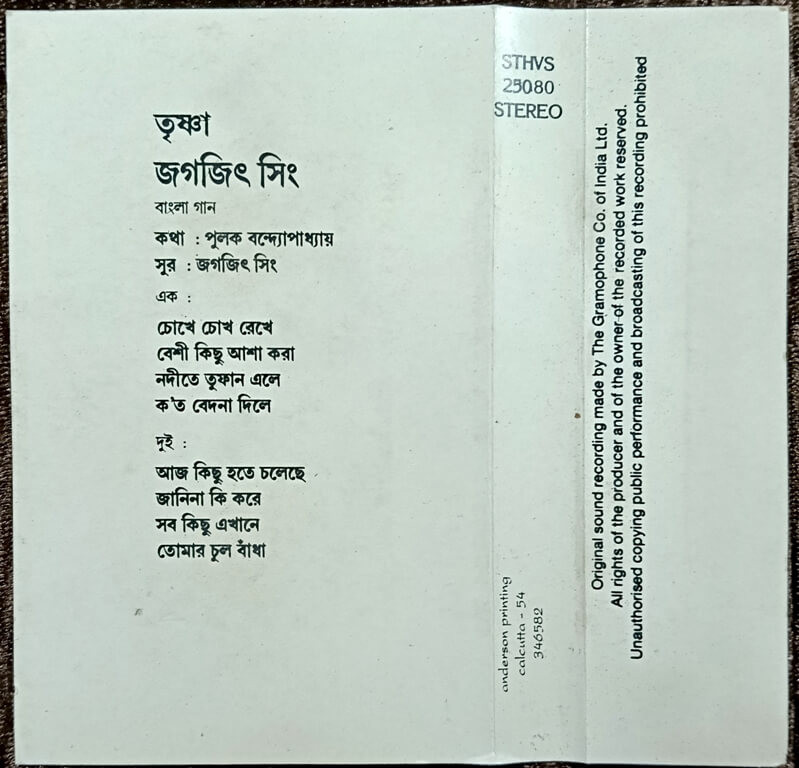 তৃষ্ণা
জগজিৎ সিং
বাংলা গান
কথা : পুলক বন্দ্যোপাধ্যায়
সুর : জগজিৎ সিং
এক :
চোখে চোখ রেখে
বেশী কিছু আশা করা
নদীতে তুফান এলে
ক'ত বেদনা দিলে
দুই :
আজ কিছু হতে চলেছে
জানিনা কি করে
সব কিছু এখানে
তোমার চুল বাঁধা
STHVS
25080
STEREO
anderson printing
calcutta - 54
346582
Original sound recording made by The Gramophone Co. of India Ltd.
All rights of the producer and of the owner of the recorded work reserved.
Unauthorised copying public performance and broadcasting of this recording prohibited